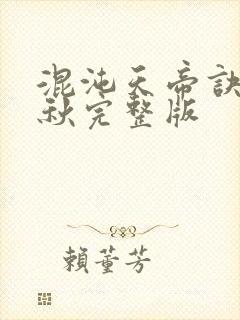 混沌天帝訣
秋完整版
賴董芳